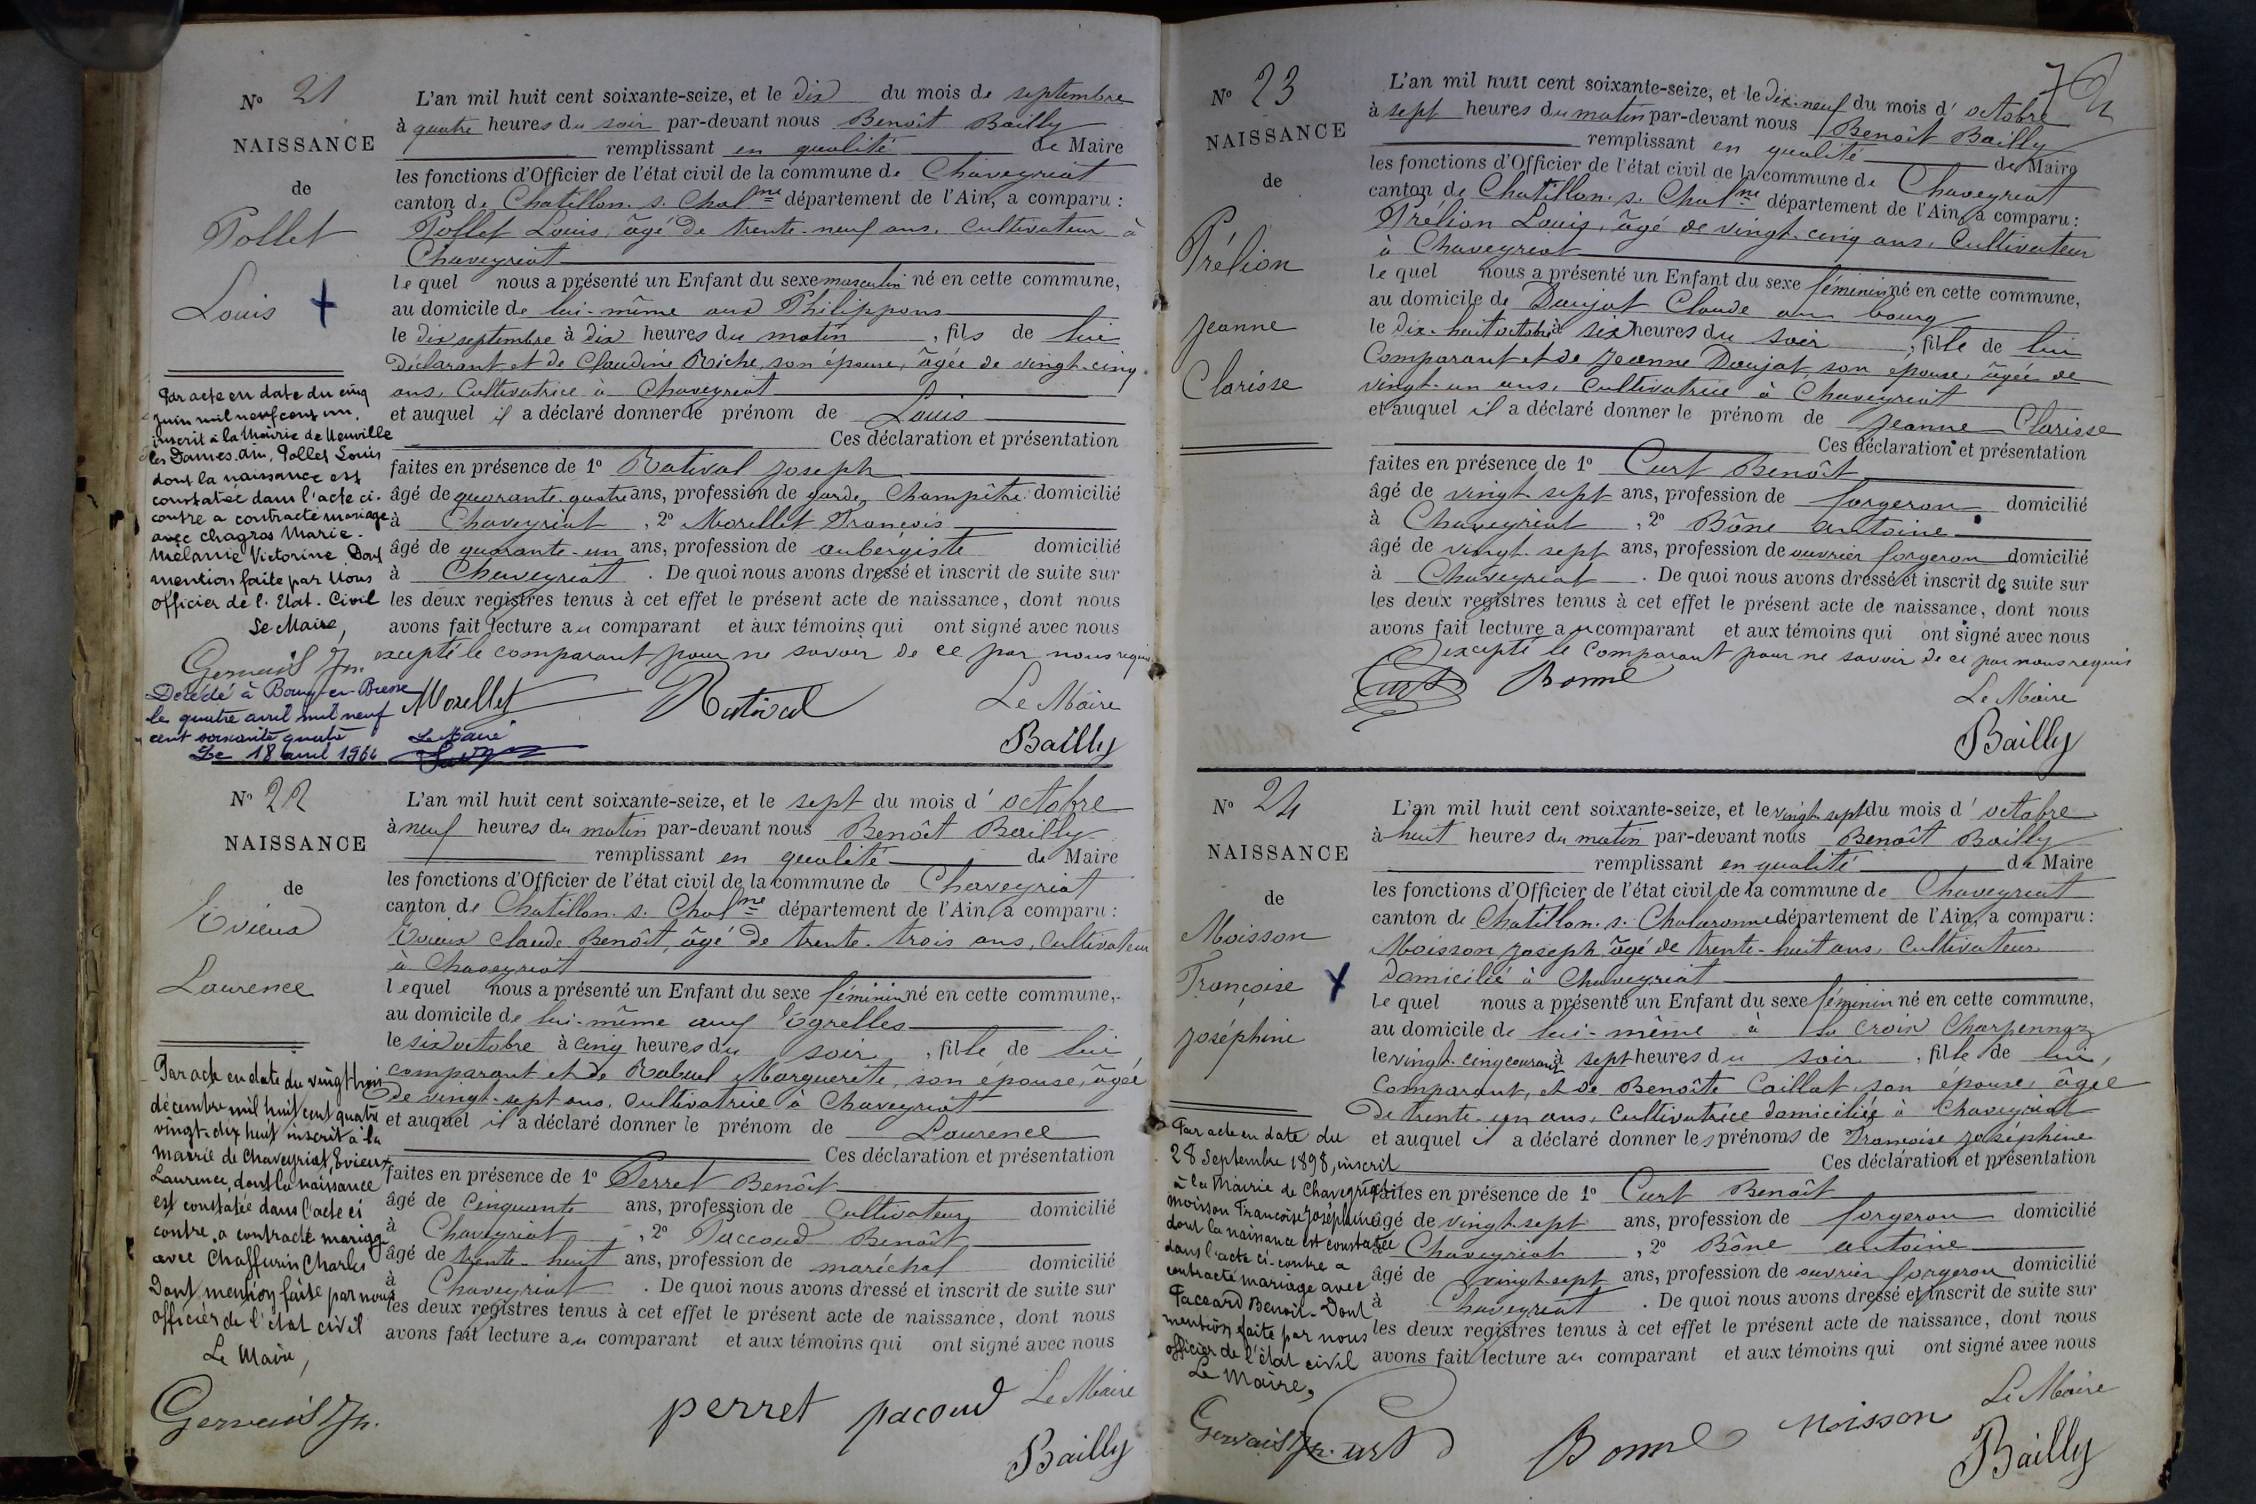 N° 21
NAISSANCE
de
Pollet
Louis +
L'an mil huit cent soixante-seize, et le dix du mois de septembre
à quatre heures du soir par-devant nous Benoît Bailly
remplissant en qualité de Maire
les fonctions d'Officier de l'état civil de la commune de Chaveyriat
canton de Chatillon s. Chal ne département de l'Ain, a comparu :
Pollet Louis, âgé de trente-neuf ans, cultivateur à
Chaveyriat
lequel nous a présenté un Enfant du sexe masculin né en cette commune,
au domicile de lui-même aux Philippons
le dix septembre à dix heures du matin, fils de lui
Déclarant et de Claudine Riche, son épouse, âgée de vingt-cinq
ans, Cultivatrice à Chaveyriat
et auquel il a déclaré donner le prénom de Louis
Ces déclaration et présentation
faites en présence de 1° Rativat Joseph
âgé de quarante-quatre ans, profession de garde Champêtre domicilié
à Chaveyriat, 2° Morellet François
âgé de quarante-un ans, profession de aubergiste domicilié
à Chaveyriat. De quoi nous avons dressé et inscrit de suite sur
les deux registres tenus à cet effet le présent acte de naissance, dont nous
avons fait lecture au comparant et aux témoins qui ont signé avec nous
excepté le comparant pour ne savoir de ce par nous requis
Morellet Rativat Le Maire
Bailly
Par acte en date du cinq
juin mil neuf cent un,
inscrit à la Mairie de Neuville
les Dames, Ain, Pollet Louis
dont la naissance est
constatée dans l'acte ci-
contre a contracté mariage
avec Chagros Marie-
Mélanie Victorine. Dont
mention faite par Nous
officier de l'Etat-Civil
Le Maire,
Gervais Jn.
Décédé à Bourg-en-Bresse
le quatre avril mil neuf
cent soixante quatre
Le 18 avril 1964
Le Maire
N° 22
NAISSANCE
de
Evieux
Laurence
L'an mil huit cent soixante-seize, et le sept du mois d'octobre
à neuf heures du matin par-devant nous Benoît Bailly
remplissant en qualité de Maire
les fonctions d'Officier de l'état civil de la commune de Chaveyriat
canton de Chatillon s. Chal ne département de l'Ain, a comparu :
Evieux Claude Benoît, âgé de trente-trois ans, cultivateur
à Chaveyriat
lequel nous a présenté un Enfant du sexe féminin né en cette commune,
au domicile de lui-même aux Egrelles
le six octobre à cinq heures du soir, fille de lui
comparant et de Rabuel Marguerite, son épouse, âgée
de vingt-sept ans, cultivatrice à Chaveyriat
et auquel il a déclaré donner le prénom de Laurence
Ces déclaration et présentation
faites en présence de 1° Perret Benoît
âgé de cinquante ans, profession de cultivateur domicilié
à Chaveyriat, 2° Paccoud Benoît
âgé de trente-huit ans, profession de maréchal domicilié
à Chaveyriat. De quoi nous avons dressé et inscrit de suite sur
les deux registres tenus à cet effet le présent acte de naissance, dont nous
avons fait lecture au comparant et aux témoins qui ont signé avec nous
perret pacoud Le Maire
Bailly
Par acte en date du vingt trois
décembre mil huit cent quatre
vingt-dix huit inscrit à la
mairie de Chaveyriat, Evieux
Laurence, dont la naissance
est constatée dans l'acte ci
contre, a contracté mariage
avec Chaffurin Charles
Dont mention faite par nous
officier de l'état civil
Le Maire,
Gervais Jn.
N° 23
NAISSANCE
de
Prélion
Jeanne
Clarisse
L'an mil huit cent soixante-seize, et le dix-neuf du mois d'octobre
à sept heures du matin par-devant nous Benoît Bailly
remplissant en qualité de Maire
les fonctions d'Officier de l'état civil de la commune de Chaveyriat
canton de Chatillon s. Chal ne département de l'Ain, a comparu :
Prélion Louis, âgé de vingt-cinq ans, Cultivateur
à Chaveyriat
lequel nous a présenté un Enfant du sexe féminin né en cette commune,
au domicile de Daujat Claude au bourg
le dix-huit octobre à six heures du soir, fille de lui
Comparant et de Jeanne Daujat, son épouse, âgée de
vingt-un ans, cultivatrice à Chaveyriat
et auquel il a déclaré donner le prénom de Jeanne Clarisse
Ces déclaration et présentation
faites en présence de 1° Curt Benoît
âgé de vingt sept ans, profession de forgeron domicilié
à Chaveyriat, 2° Bône antoine
âgé de vingt-sept ans, profession de ouvrier forgeron domicilié
à Chaveyriat. De quoi nous avons dressé et inscrit de suite sur
les deux registres tenus à cet effet le présent acte de naissance, dont nous
avons fait lecture au comparant et aux témoins qui ont signé avec nous
excepté le Comparant pour ne savoir de ce par nous requis
Curt Bonne Le Maire
Bailly
N° 24
NAISSANCE
de
Moisson
Françoise
Joséphine
L'an mil huit cent soixante-seize, et le vingt-sept du mois d'octobre
à huit heures du matin par-devant nous Benoît Bailly
remplissant en qualité de Maire
les fonctions d'Officier de l'état civil de la commune de Chaveyriat
canton de Chatillon s. Chalaronne département de l'Ain, a comparu :
Moisson Joseph âgé de trente-huit ans, Cultivateur
domicilié à Chaveyriat
lequel nous a présenté un Enfant du sexe féminin né en cette commune,
au domicile de lui-même à la croix Charpennaz
le vingt-cinq courant à sept heures du soir, fille de lui,
Comparant, et de Benoîte Caillat son épouse, âgée
de trente-un ans, Cultivatrice domiciliée à Chaveyriat
et auquel il a déclaré donner les prénoms de Françoise Joséphine
Ces déclaration et présentation
faites en présence de 1° Curt Benoît
âgé de vingt-sept ans, profession de forgeron domicilié
à Chaveyriat, 2° Bône antoine
âgé de vingt-sept ans, profession de ouvrier forgeron domicilié
à Chaveyriat. De quoi nous avons dressé et inscrit de suite sur
les deux registres tenus à cet effet le présent acte de naissance, dont nous
avons fait lecture au comparant et aux témoins qui ont signé avec nous
Curt Bonne Moisson Le Maire
Bailly
Par acte en date du
28 Septembre 1898, inscrit
à la Mairie de Chaveyriat
moisson Françoise Joséphine
dont la naissance est constatée
dans l'acte ci-contre a
contracté mariage avec
Paccard Benoît - Dont
mention faite par nous
officier de l'état civil
Le Maire,
Gervais Jn.